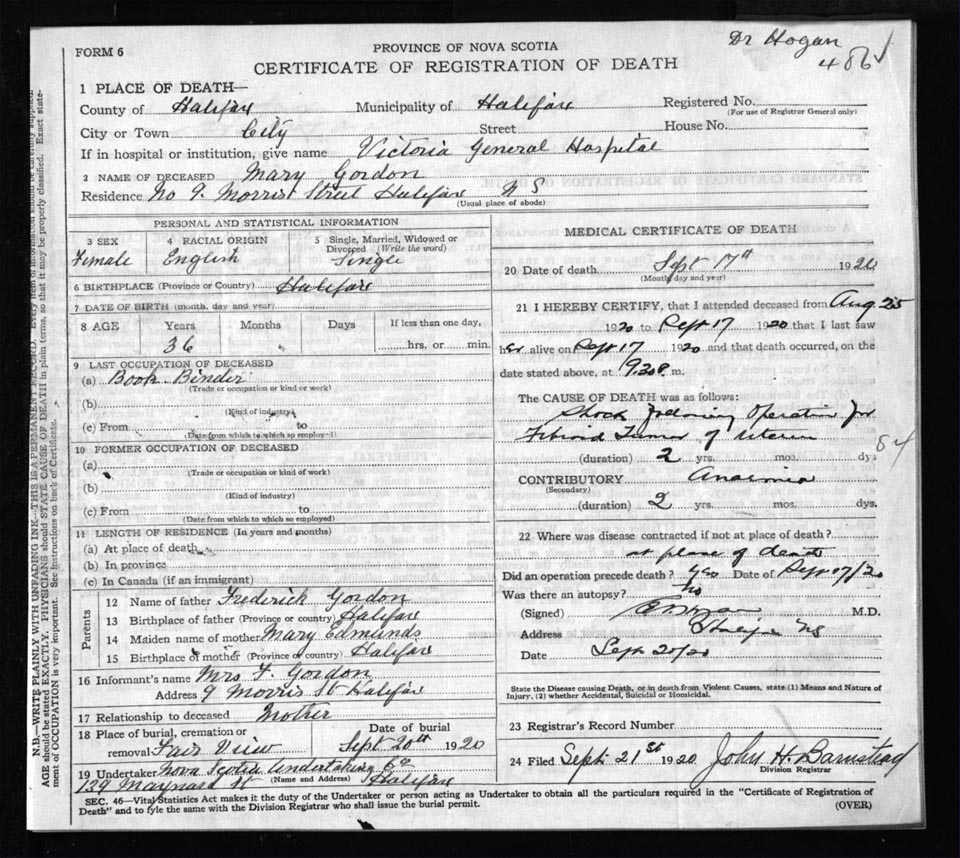 Dr Hogan
486
FORM 6
PROVINCE OF NOVA SCOTIA
CERTIFICATE OF REGISTRATION OF DEATH
1 PLACE OF DEATH—
County of Halifax Municipality of Halifax Registered No.
(For use of Registrar General only)
City or Town City Street House No.
If in hospital or institution, give name Victoria General Hospital
2 NAME OF DECEASED Mary Gordon
Residence No 9. Morris Street Halifax N S
(Usual place of abode)
PERSONAL AND STATISTICAL INFORMATION
3 SEX 4 RACIAL ORIGIN 5 Single, Married, Widowed or Divorced (Write the word)
Female English Single
6 BIRTHPLACE (Province or Country) Halifax
7 DATE OF BIRTH (month, day and year)
8 AGE Years Months Days If less than one day,
36 hrs. or min.
9 LAST OCCUPATION OF DECEASED
(a) Book Binder
(Trade or occupation or kind or work)
(b)
(Kind of industry)
(c) From to
(Date from which to which so employed)
10 FORMER OCCUPATION OF DECEASED
(a)
(Trade or occupation or kind of work)
(b)
(Kind of industry)
(c) From to
(Date from which to which so employed)
11 LENGTH OF RESIDENCE (In years and months)
(a) At place of death
(b) In province
(c) In Canada (if an immigrant)
Parents
12 Name of father Frederick Gordon
13 Birthplace of father (Province or country) Halifax
14 Maiden name of mother Mary Edmunds
15 Birthplace of mother (Province or Country) Halifax
16 Informant's name Mrs F. Gordon
Address 9 Morris St Halifax
17 Relationship to deceased Mother
18 Place of burial, cremation or removal Fair View
Date of burial
Sept 20th 1920
19 Undertaker Nova Scotia Undertaking Co
(Name and Address)
139 Maynard St Halifax
MEDICAL CERTIFICATE OF DEATH
20 Date of death Sept 17th 1920
(Month day and year)
21 I HEREBY CERTIFY, that I attended deceased from Aug 25
1920 to Sept 17 1920 that I last saw
her alive on Sept 17 1920 and that death occurred, on the
date stated above, at 9.30 P. m.
The CAUSE OF DEATH was as follows:
Shock following Operation for
Fibroid Tumor of uterus
(duration) 2 yrs. mos. dys
CONTRIBUTORY Anaemia
(Secondary)
(duration) 2 yrs. mos. dys.
22 Where was disease contracted if not at place of death?
at place of death
Did an operation precede death? yes Date of Sept 17/20
Was there an autopsy? no
(Signed) M.D.
Address Halifax NS
Date Sept 20/20
State the Disease causing Death, or in death from Violent Causes, state (1) Means and Nature of
Injury, (2) whether Accidental, Suicidal or Homicidal.
23 Registrar's Record Number
24 Filed Sept. 21st 1920 John H. Barnstead
Division Registrar
SEC. 46—Vital Statistics Act makes it the duty of the Undertaker or person acting as Undertaker to obtain all the particulars required in the "Certificate of Registration of
Death" and to fyle the same with the Division Registrar who shall issue the burial permit.
(OVER)
N.B.—WRITE PLAINLY WITH UNFADING INK—THIS IS A PERMANENT RECORD. Every item of information should be
AGE should be stated EXACTLY. PHYSICIANS should STATE CAUSE OF DEATH in plain terms, so that it may be properly classified. Exact state-
ment of OCCUPATION is very important. See instructions on back of Certificate.